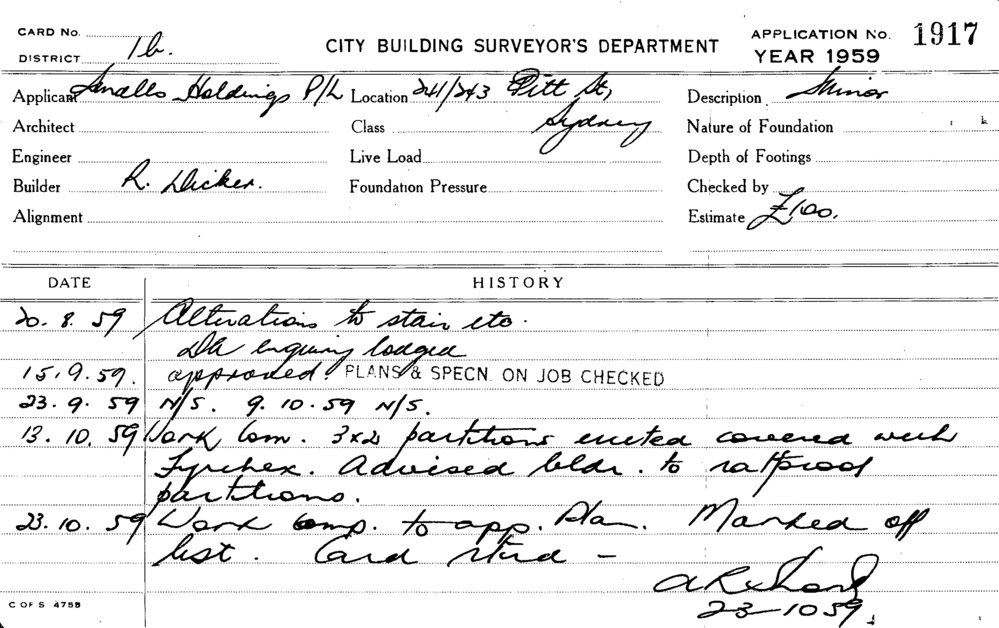 CARD No.
DISTRICT 1b.
CITY BUILDING SURVEYOR'S DEPARTMENT
APPLICATION No. 1917
YEAR 1959
Applicant Smalls Holdings P/L Location 241/243 Pitt St, Description Minor
Architect Class Sydney Nature of Foundation
Engineer Live Load Depth of Footings
Builder R. Dicker. Foundation Pressure Checked by
Alignment Estimate £100.
DATE HISTORY
20. 8. 59 Alterations to stair etc.
DA enquiry lodged
15. 9. 59. approved. PLANS & SPECN. ON JOB CHECKED
23. 9. 59 N/S. 9. 10. 59 N/S.
13. 10. 59 Work Com. 3x2 partitions erected covered with
Fyrchex. Advised bldr. to ratproof
partitions.
23. 10. 59 Work comp. to app. Plan. Marked off
list. Card
23-10 59.
C OF S 4755